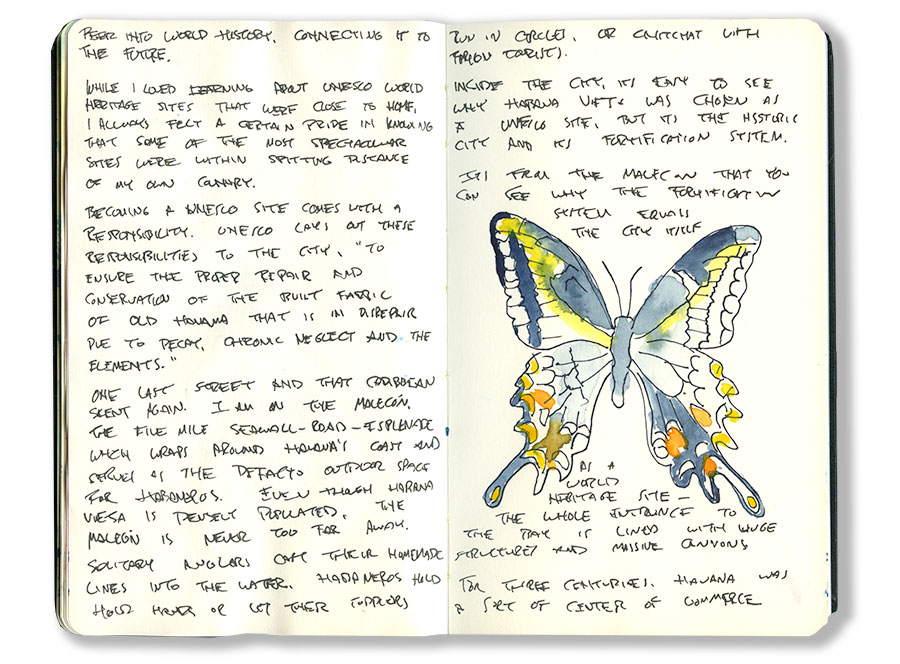 PEER INTO WORLD HISTORY, CONNECTING IT TO
THE FUTURE.
WHILE I LOVED LEARNING ABOUT UNESCO WORLD
HERITAGE SITES THAT WERE CLOSE TO HOME,
I ALWAYS FELT A CERTAIN PRIDE IN KNOWING
THAT SOME OF THE MOST SPECTACULAR
SITES WERE WITHIN SPITTING DISTANCE
OF MY OWN COUNTRY.
BECOMING A UNESCO SITE COMES WITH A
RESPONSIBILITY. UNESCO LAYS OUT THESE
RESPONSIBILITIES TO THE CITY, "TO
ENSURE THE PROPER REPAIR AND
CONSERVATION OF THE BUILT FABRIC
OF OLD HAVANA THAT IS IN DISREPAIR
DUE TO DECAY, CHRONIC NEGLECT AND THE
ELEMENTS."
ONE LAST STREET AND THAT CARIBBEAN
SCENT AGAIN. I AM ON THE MALECÓN.
THE FIVE MILE SEAWALL-ROAD-ESPLENADE
WHICH WRAPS AROUND HAVANA'S COAST AND
SERVES AS THE DEFACTO OUTDOOR SPACE
FOR HABANEROS. EVEN THOUGH HABANA
VIEJA IS DENSELY POPULATED, THE
MALECÓN IS NEVER TOO FAR AWAY.
SOLITARY ANGLERS CAST THEIR HOMEMADE
LINES INTO THE WATER. HABANEROS HOLD
HOLD HANDS OR LET THEIR TODDLERS
RUN IN CIRCLES, OR CHITCHAT WITH
FOREIGN TOURISTS.
INSIDE THE CITY, ITS EASY TO SEE
WHY HABANA VIEJA WAS CHOSEN AS
A UNESCO SITE, BUT ITS THE HISTORIC
CITY AND ITS FORTIFICATION SYSTEM.
ITS FROM THE MALECON THAT YOU
CAN SEE WHY THE FORTIFICATION
SYSTEM EQUALS
THE CITY ITSELF
AS A
WORLD
HERITAGE SITE –
THE WHOLE ENTRANCE TO
THE BAY IS LINED WITH HUGE
STRUCTURES AND MASSIVE CANNONS
FOR THREE CENTURIES. HAVANA WAS
A SORT OF CENTER OF COMMERCE